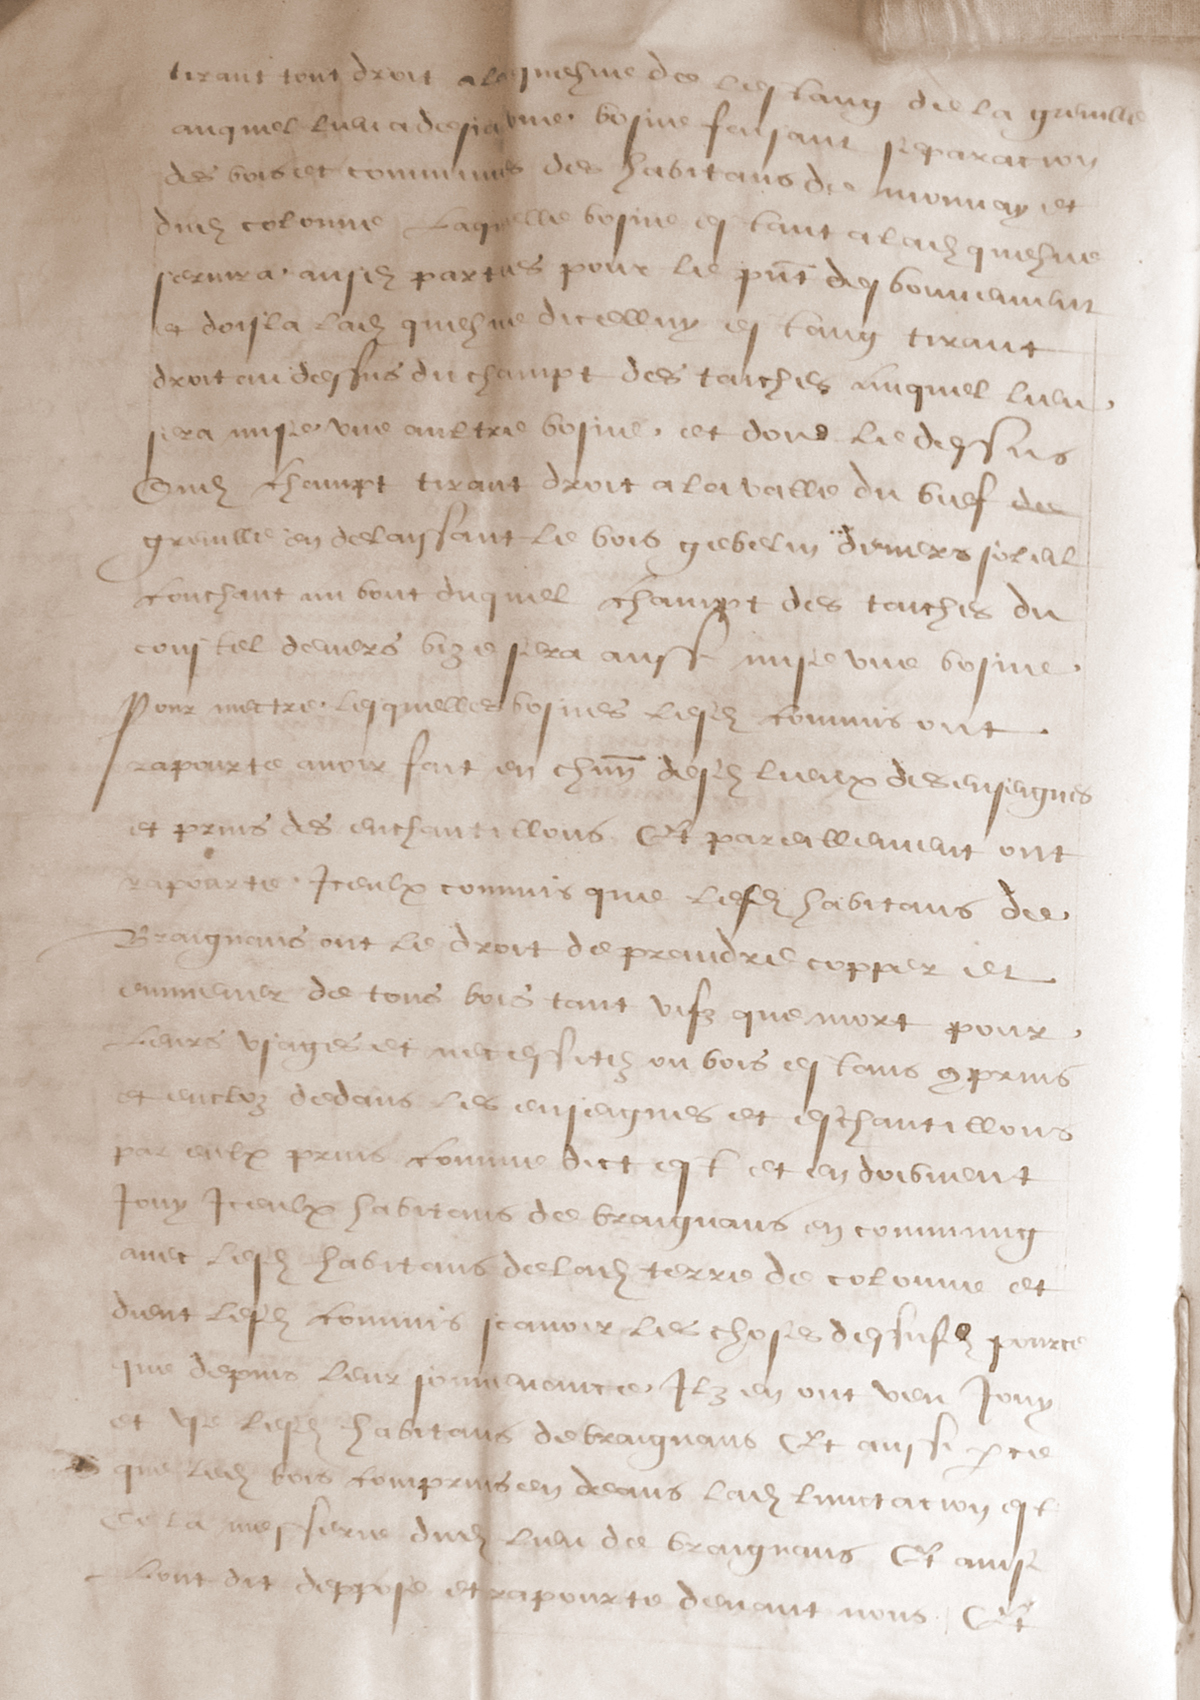 tirant tout droit a la quehue de lestang de la greuille
auquel lieu a desia une bosine faisant separacion
des bois et communes des habitans de monnay et
dud colonne Laquelle bosine estant a lad quehue
seruira ausd parties pour le pnt desbonnement
et dois la lad quehue dicelluy estang tirant
droit au dessus du champt des taiches Auquel lieu
sera mise une aultre bosine et dois le dessus
Dud champt tirant droit a la valle du bief de
greuille en delaissant le bois gebelin deuers soleil
couchant au bout duquel champt des taiches du
coustel deuers bize sera aussi mise une bosine
Pour mectre lesquelles bosines lesd commis ont
rapourte auoir fait en chun desd lieux des enseignes
et prins des enchantillons Et pareillement ont
rapourte Iceulx commis que lesd habitans de
Braignans ont le droit de prendre copper et
emmener de tous bois tant vifz que mort pour
Leurs usages et necessitez ou bois estans 9prins
et encloz dedans les enseignes et eschantillons
par eulx prins comme dict est et en doibuent
Jouy Iceulx habitans de braignans en commung
auec lesd habitans de lad terre de colonne et
dient lesd commis scauoir les choses dessusd pource
que depuis leur souuenance Ilz en ont veu Jouy
et use lesd habitans de braignans Et aussi pce
que led bois comprins en deans lad limitacion est
De la messerie dud lieu de braignans Et ainsi
Lont dit deppose et rapourte deuant nous Et